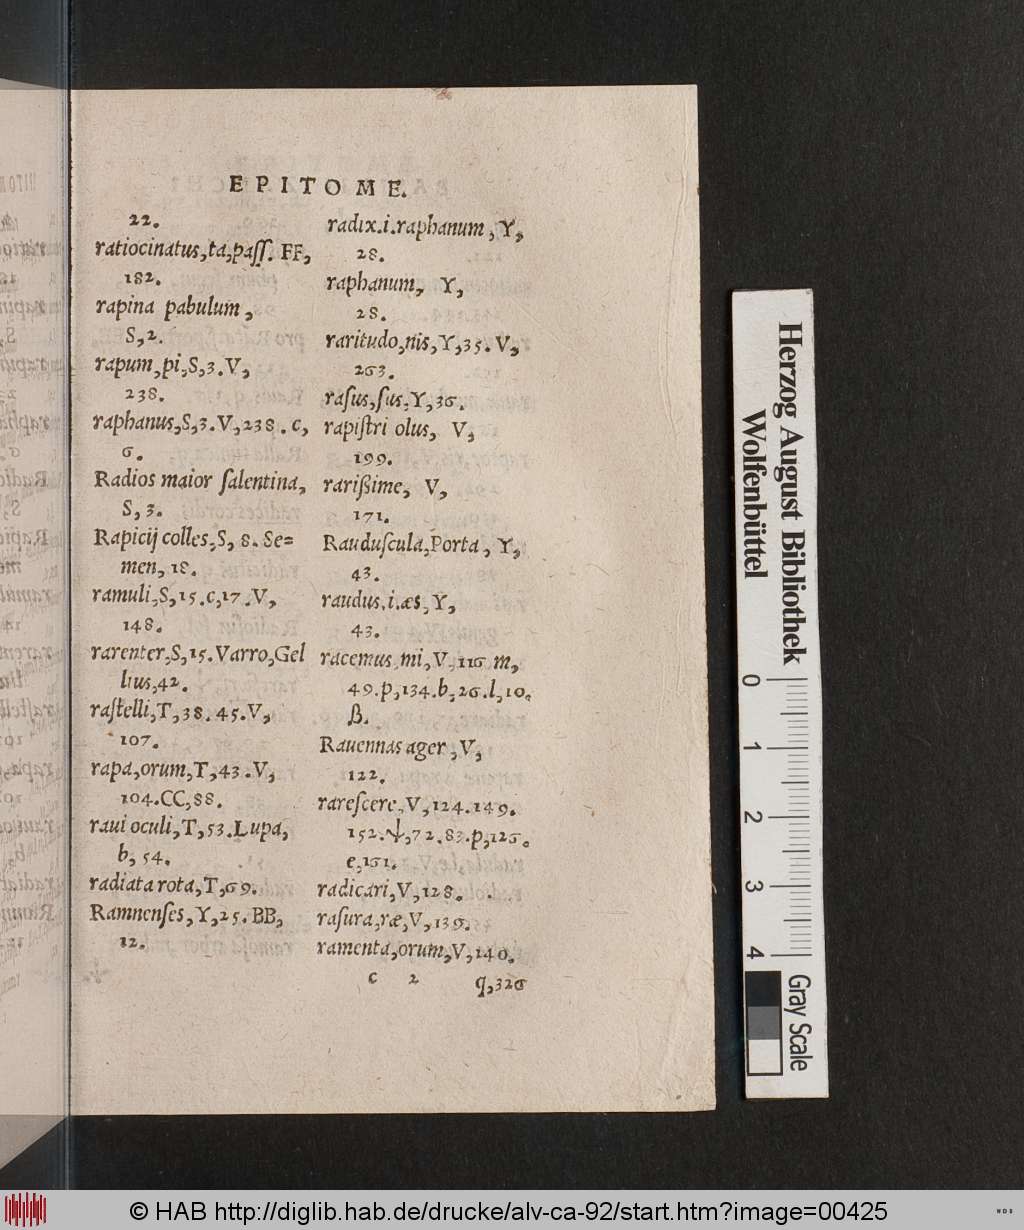 EPITOME.
22.
ratiocinatus,ta,paſſ. FF,
182.
rapina pabulum,
S,2.
rapum,pi,S,3.V,
238.
raphanus,S,3.V,238.c,
6.
Radios maior ſalentina,
S,3.
Rapicij colles,S, 8. Se=
men, 18.
ramuli,S,15.c,17.V,
148.
rarenter,S,15.Varro,Gel
lius,42.
raſtelli,T,38.45.V,
107.
rapa,orum,T,43.V,
104.CC,88.
raui oculi,T,53.Lupa,
b, 54.
radiata rota,T,69.
Ramnenſes,Y,25.BB,
12.
radix.i.raphanum, Y,
28.
raphanum, Y,
28.
raritudo,nis,Y,35.V,
263.
raſus,ſus,Y,36.
rapiſtri olus, V,
199.
rarißime, V,
171.
Rauduſcula,Porta, Y,
43.
raudus.i.æs,Y,
43.
racemus,mi,V,116.m,
49.p,134.b,26.l,10.
ß.
Rauennas ager,V,
122.
rareſcere,V,124.149.
152.ψ,72.83.p,126.
e,161.
radicari,V,128.
raſura,ræ,V,136.
ramenta,orum,V,140.
c 2 q,326
Herzog August Bibliothek
Wolfenbüttel
0 1 2 3 4
Gray Scale
© HAB http://diglib.hab.de/drucke/alv-ca-92/start.htm?image=00425